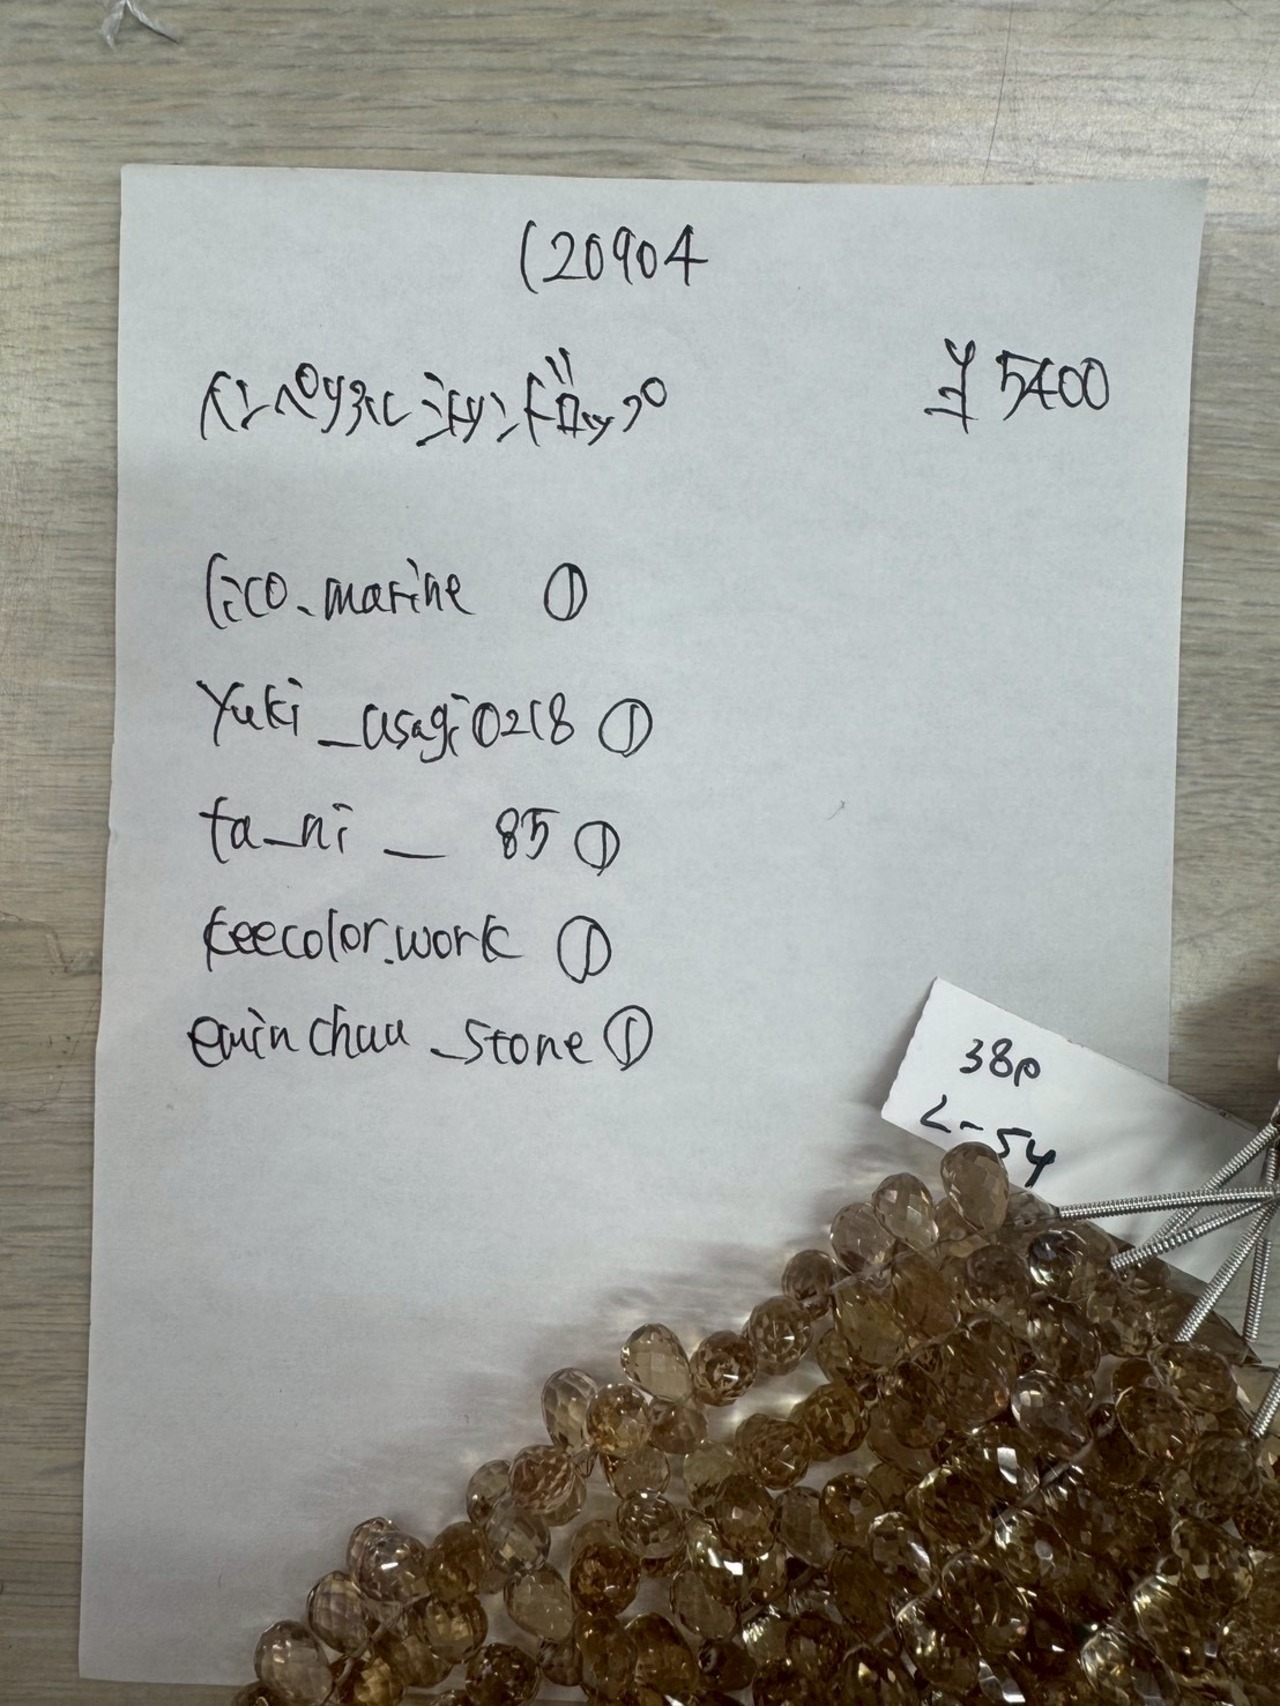 120904
インペリアルジルコンドロップ ¥5400
rico.marine ①
yuki_usagi0218 ①
ta_ni_ 85 ①
keecolor.work ①
eminchuu_stone ①
38p
L-54